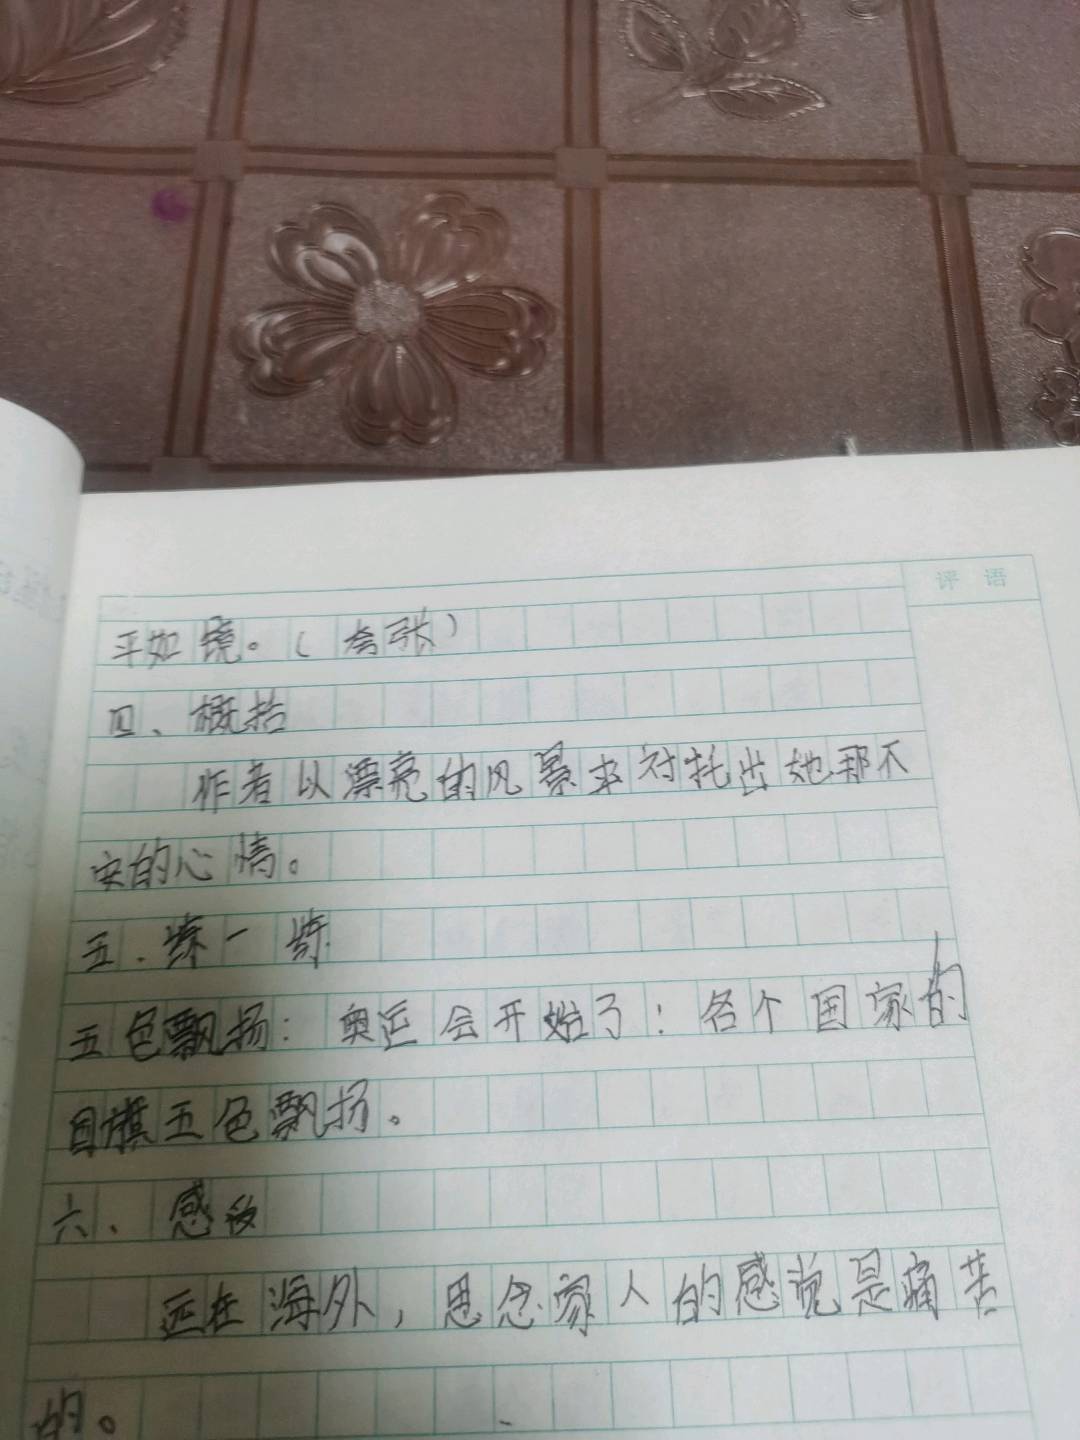 评 语
平如镜。(夸张)
四、概括
作者以漂亮的风景来衬托出她那不
安的心情。
五.练一练
五色飘扬:奥运会开始了!各个国家的
国旗五色飘扬。
六、感
远在海外,思念家人的感觉是痛苦
的。